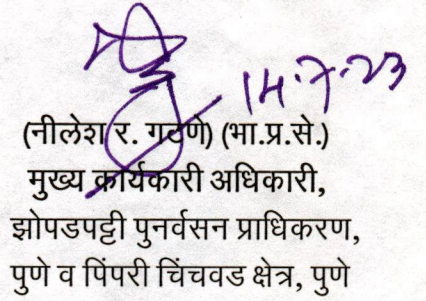 14.7.23
(नीलेश र. गटणे) (भा.प्र.से.)
मुख्य कार्यकारी अधिकारी,
झोपडपट्टी पुनर्वसन प्राधिकरण,
पुणे व पिंपरी चिंचवड क्षेत्र, पुणे